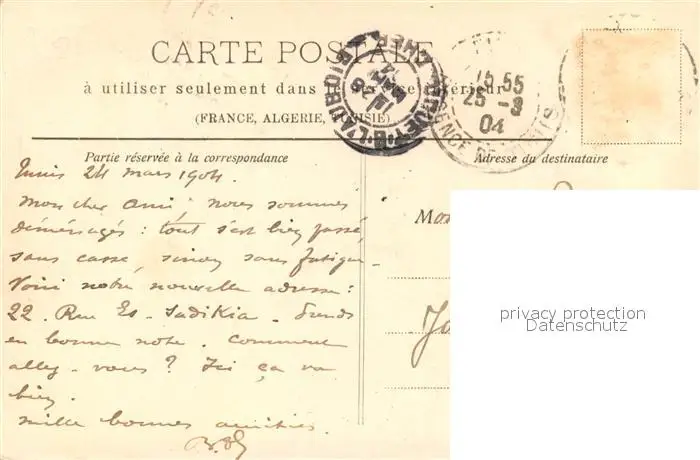 CARTE POSTALE
à utiliser seulement dans le service intérieur
(FRANCE, ALGERIE, TUNISIE)
Partie réservée à la correspondance
Adresse du destinataire
15 55
25 -3
04
Tunis 24 mars 1904.
Mon cher ami : nous sommes
déménagés : tout s'est bien passé
sans casse, sinon sans fatigue.
Voici notre nouvelle adresse :
22. Rue Es-Sadikia. Prends
en bonne note. Comment
allez-vous ? Ici ça va
bien.
mille bonnes amitiés
privacy protection
Datenschutz